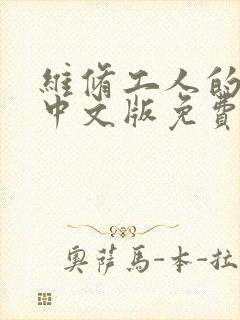 維脩工人的
中文版免費
奧薩馬-本-拉